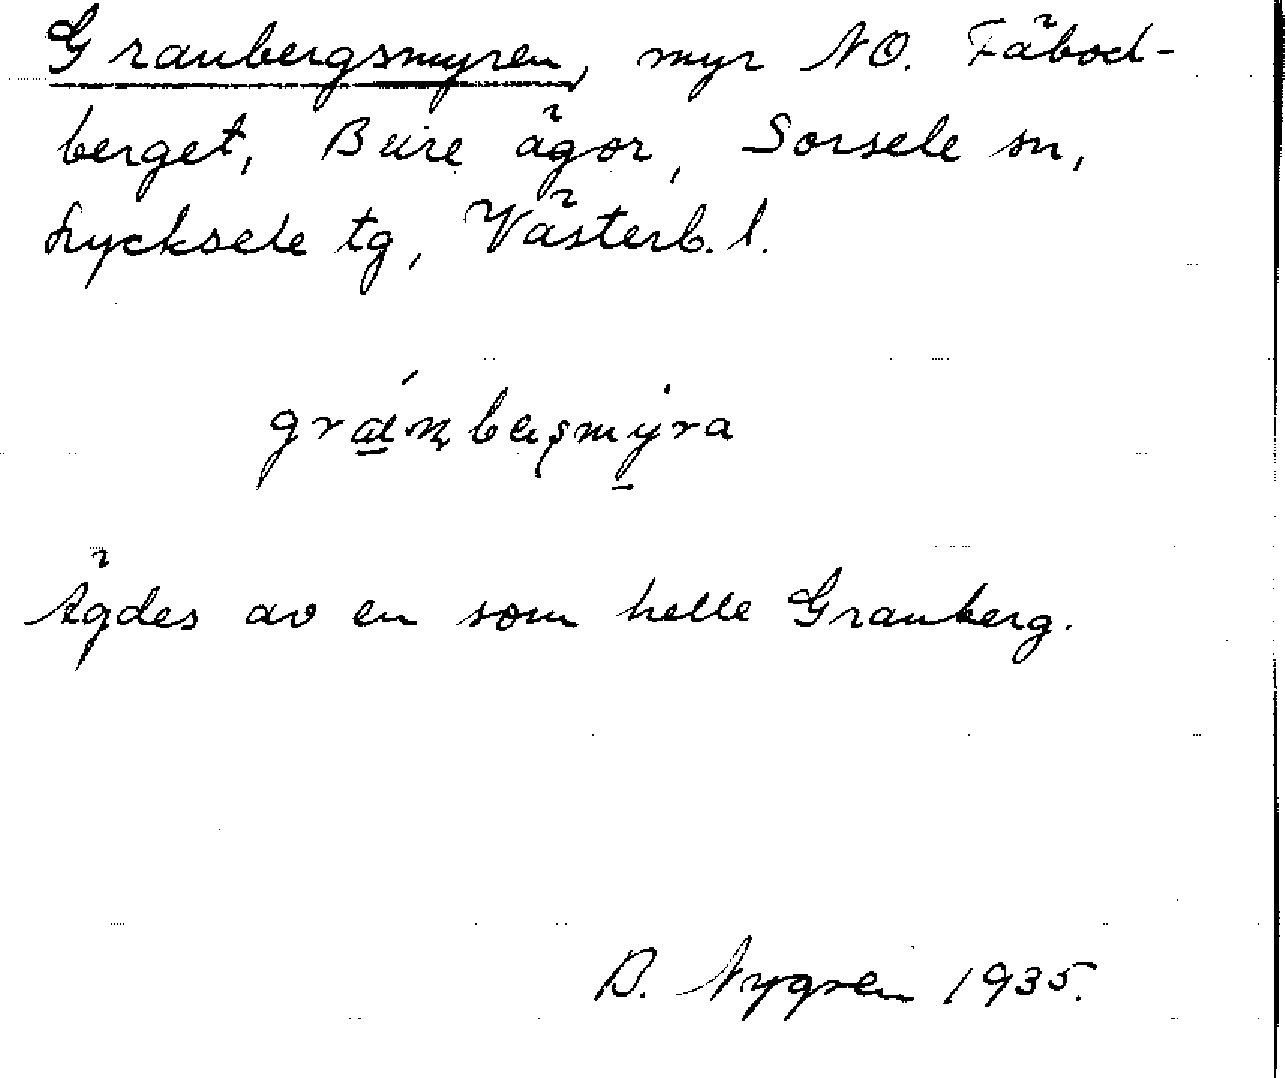 Granbergsmyren, myr NO. Fäbod-
berget, Bure ägor, Sorsele sn,
Lycksele tg, Västerb. l.
Ägdes av en som hette Granberg.
B. Nygren 1935.